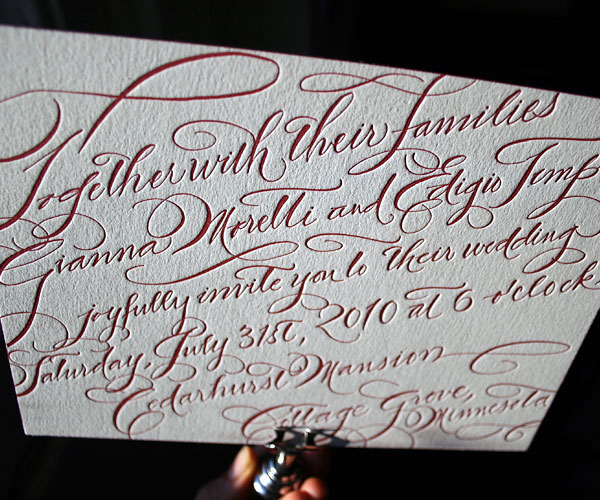 Together with their families
Gianna Morelli and Edigio
joyfully invite you to their wedding
Saturday, July 31st, 2010 at 6 o'clock
Cedarhurst Mansion
Cottage Grove, Minnesota